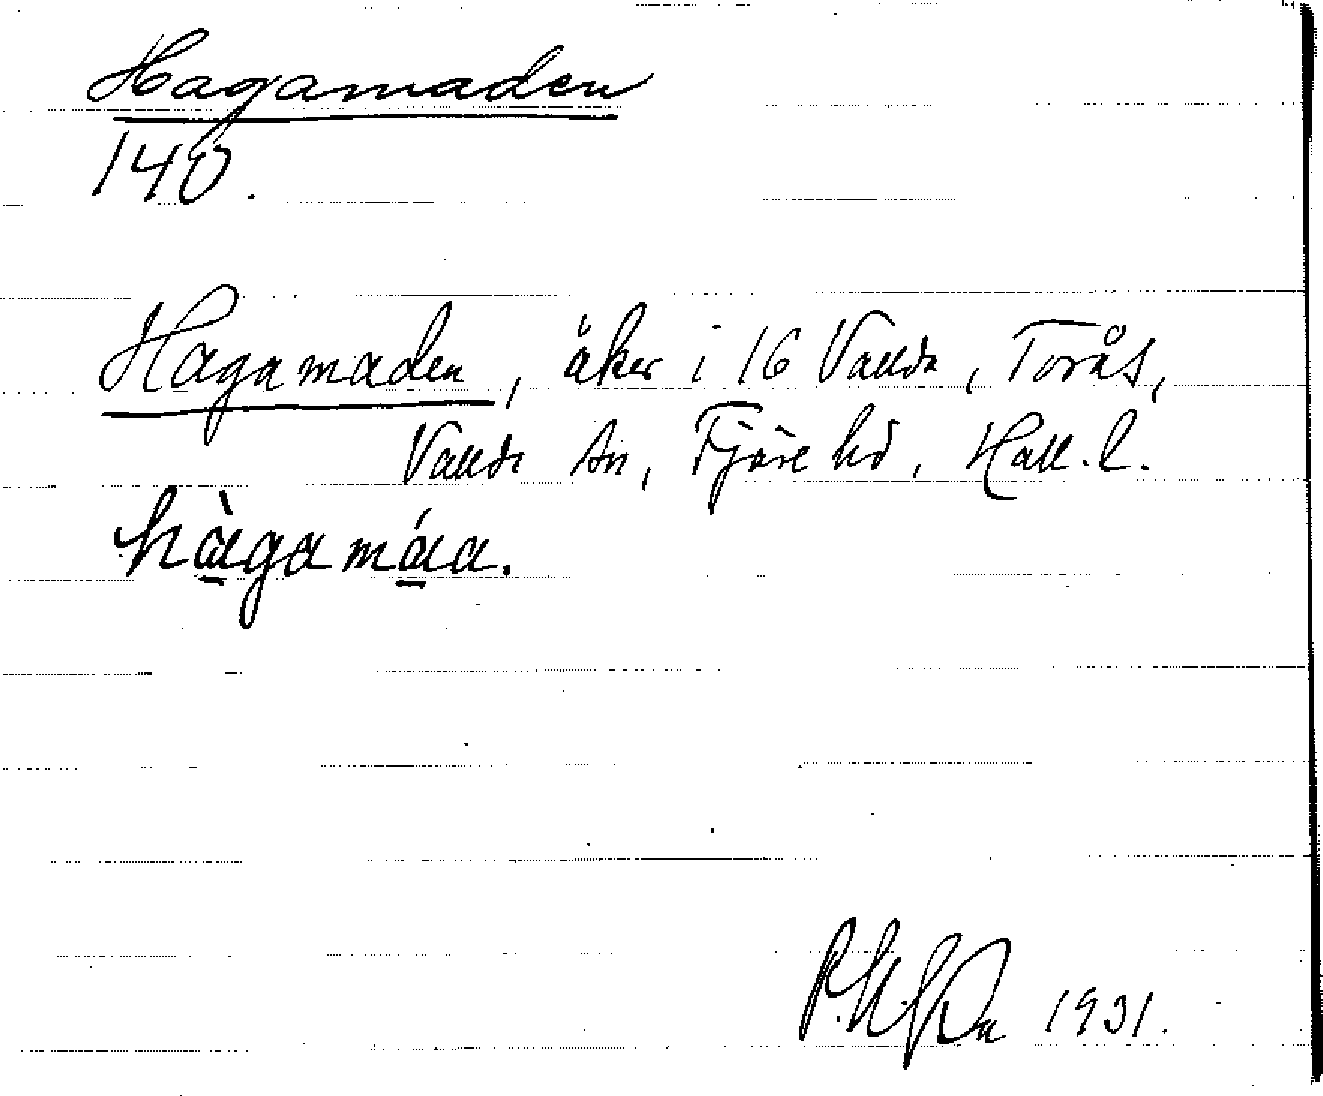 Hagamaden
140.
Hagamaden, åker i 16 Vallda, Torås,
Vallda sn, Fjäre hd, Hall. l.
hàgamáa.
1931.